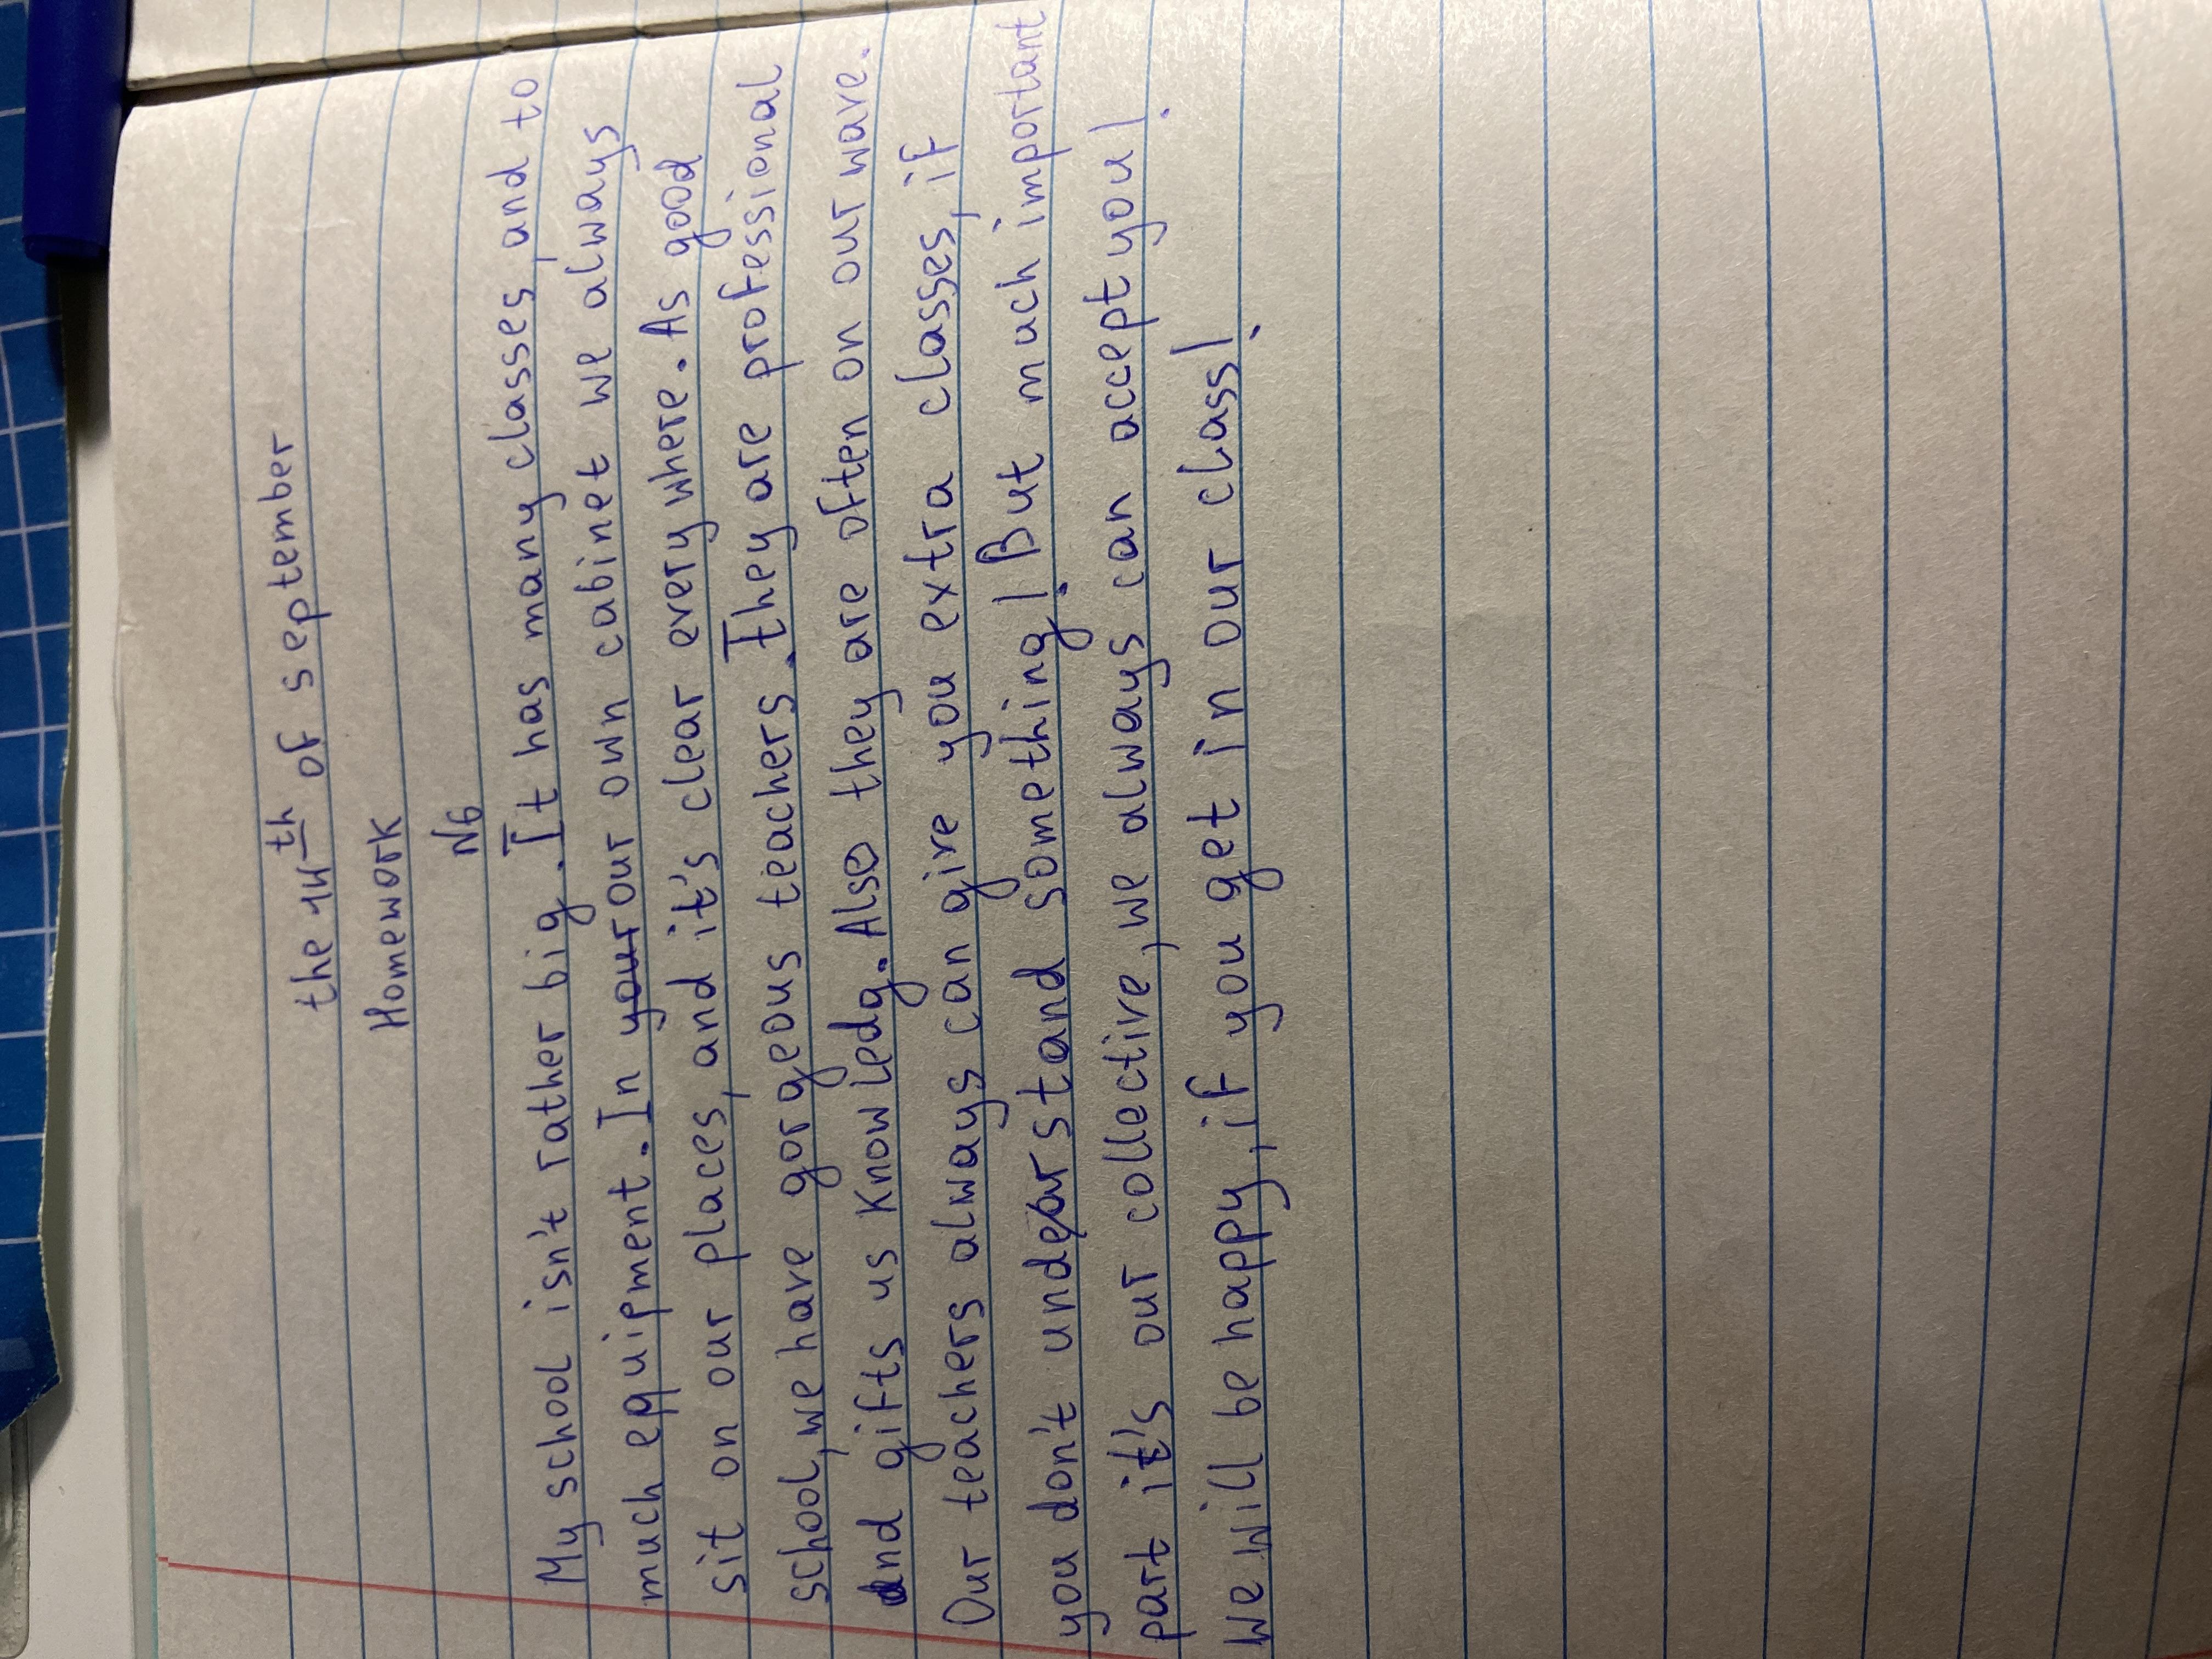 the 14th of september
Homework
N6
My school isn't rather big. It has many classes, and to
much equipment. In your our own cabinet we always
sit on our places, and it's clear every where. As good
school, we have gorgeous teachers. They are professional
and gifts us knowledg. Also they are often on our ware.
Our teachers always can give you extra classes, if
you don't understand something! But much important
part it's our collective, we always can accept you!
We will be happy, if you get in our class!